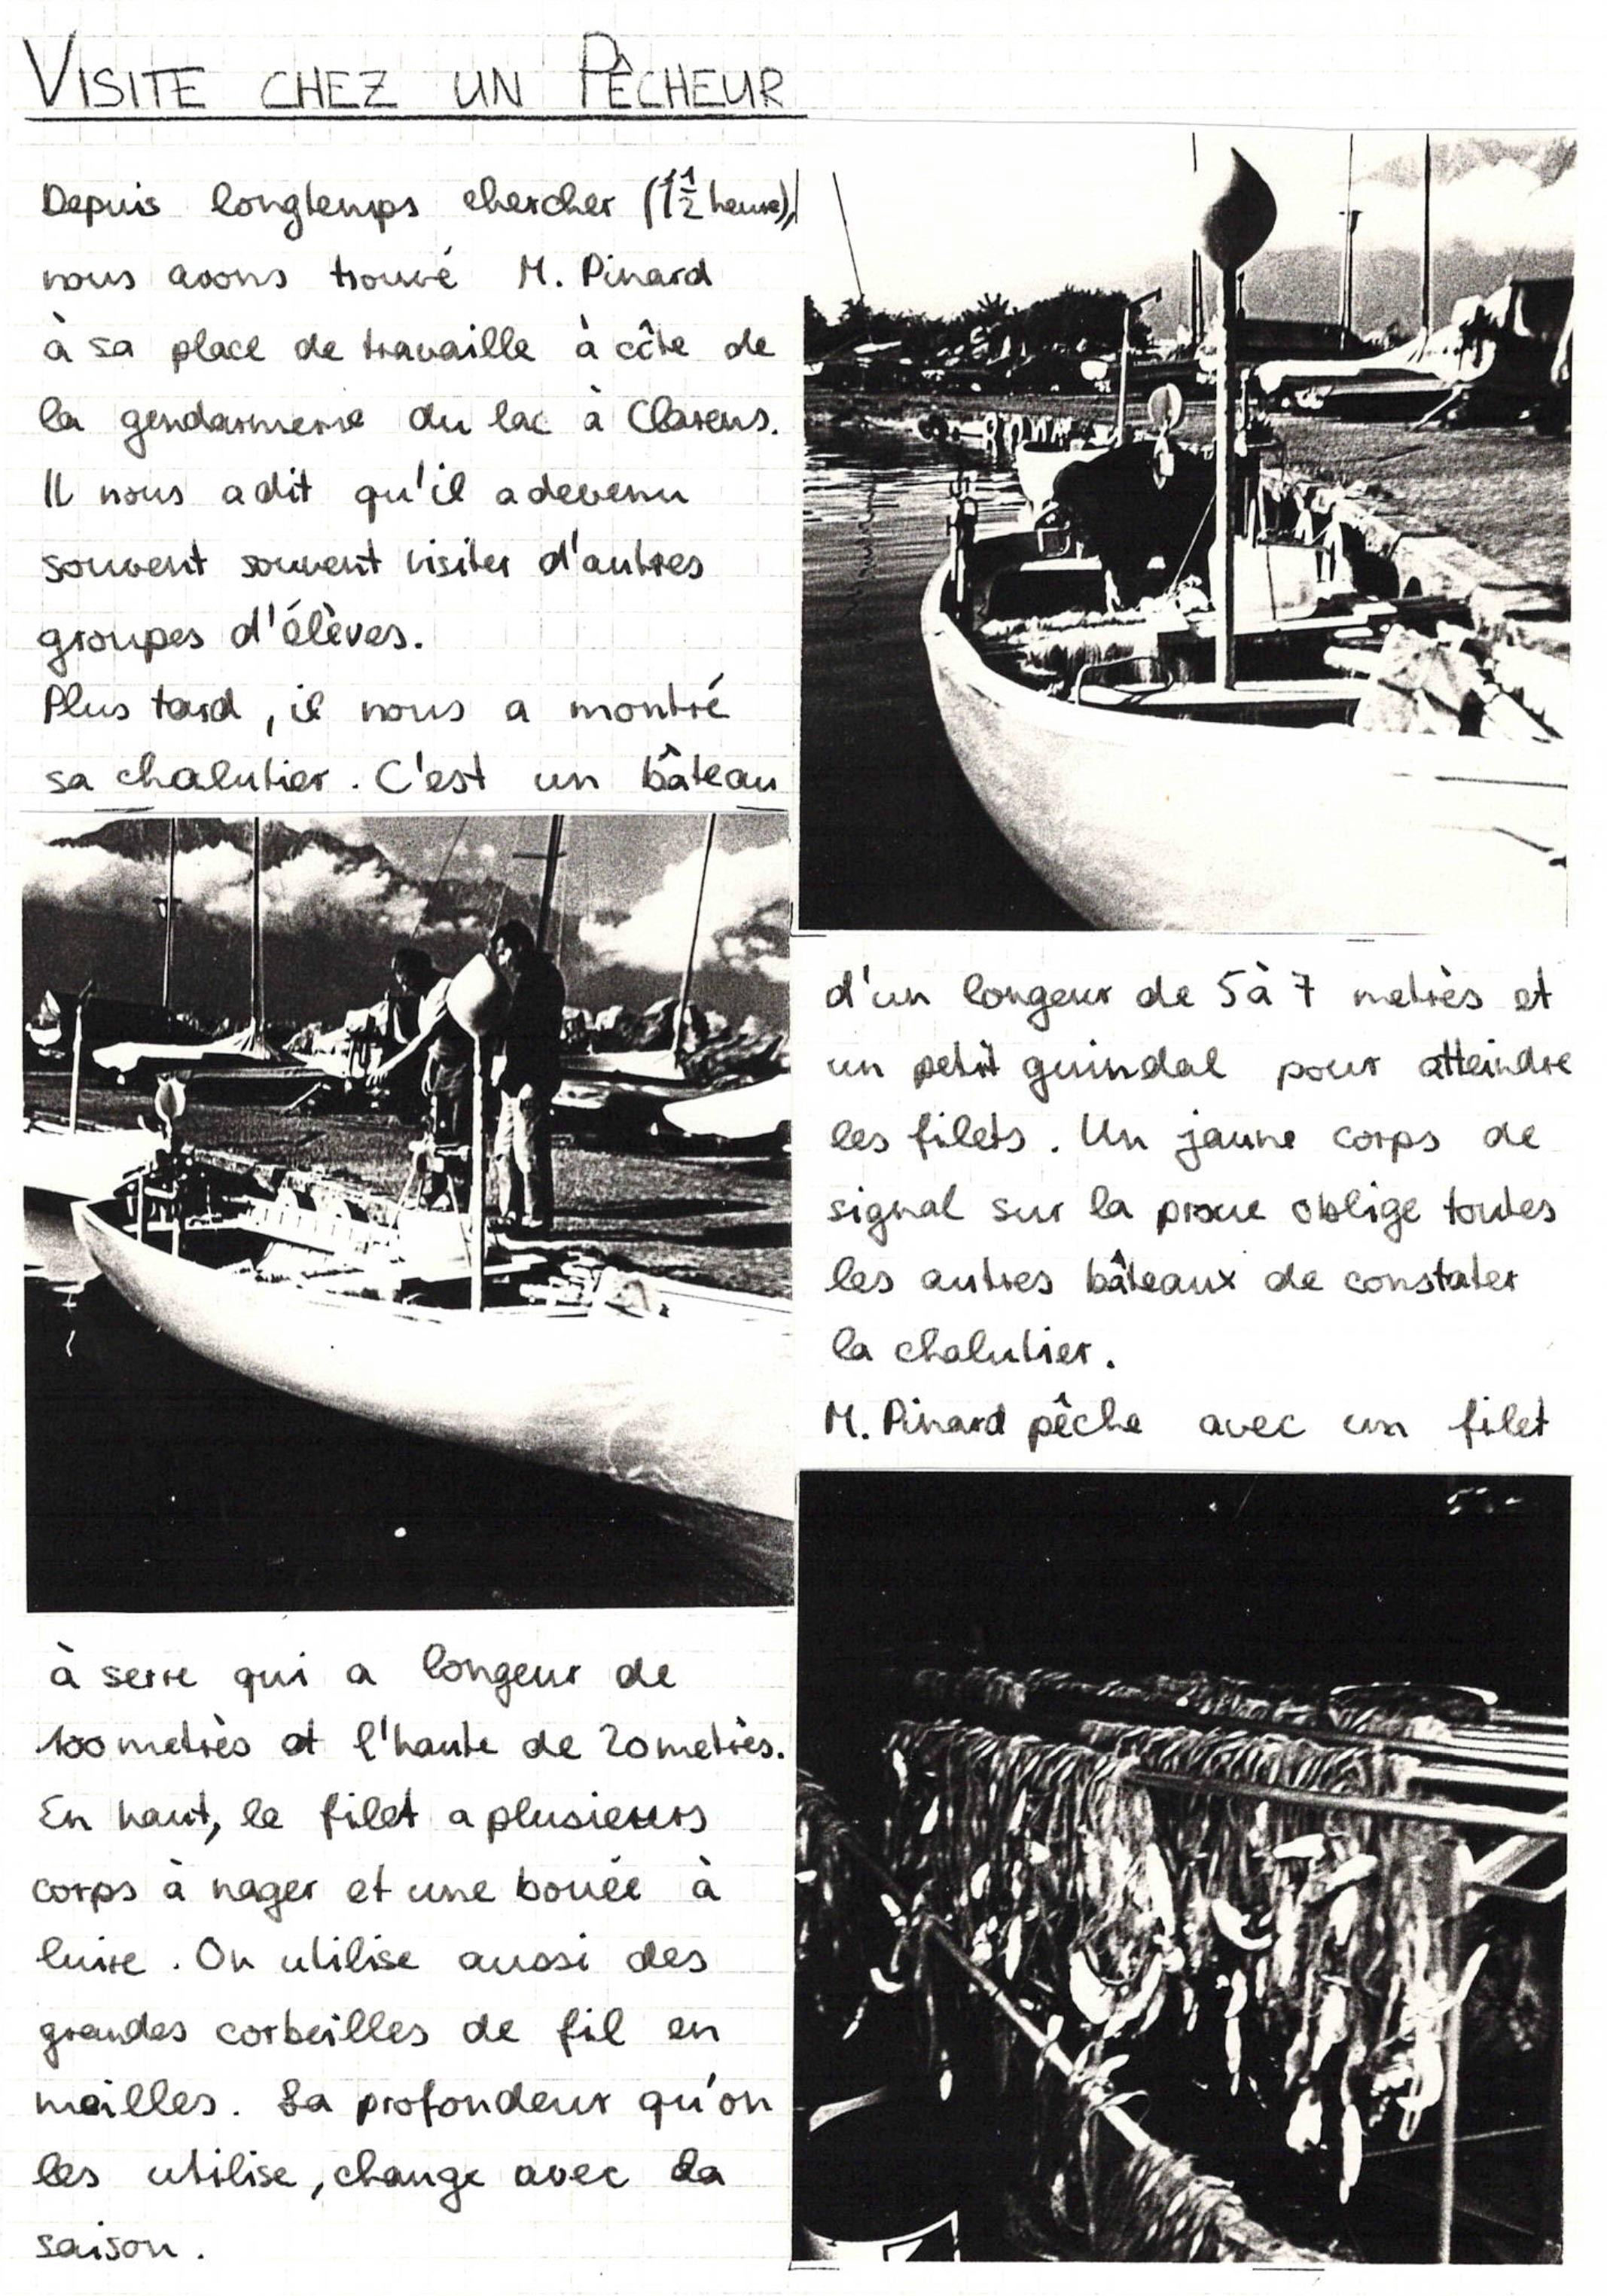 VISITE CHEZ UN PÊCHEUR
Depuis longtemps chercher (1 1/2 heure),
nous avons trouvé M. Pinard
à sa place de travaille à côte de
la gendarmerie du lac à Clarens.
Il nous a dit qu'il a devenu
souvent souvent visiter d'autres
groupes d'élèves.
Plus tard, il nous a montré
sa chalutier. C'est un bâteau
d'un longeur de 5 à 7 metrès et
un petit guindal pour atteindre
les filets. Un jaune corps de
signal sur la proue oblige toutes
les autres bâteaux de constater
la chalutier.
M. Pinard pêche avec un filet
à serre qui a longeur de
100 metrès et l'haute de 20 metrès.
En haut, le filet a plusieurs
corps à nager et une bouée à
luire. On utilise aussi des
grandes corbeilles de fil en
mailles. La profondeur qu'on
les utilise, change avec la
saison.